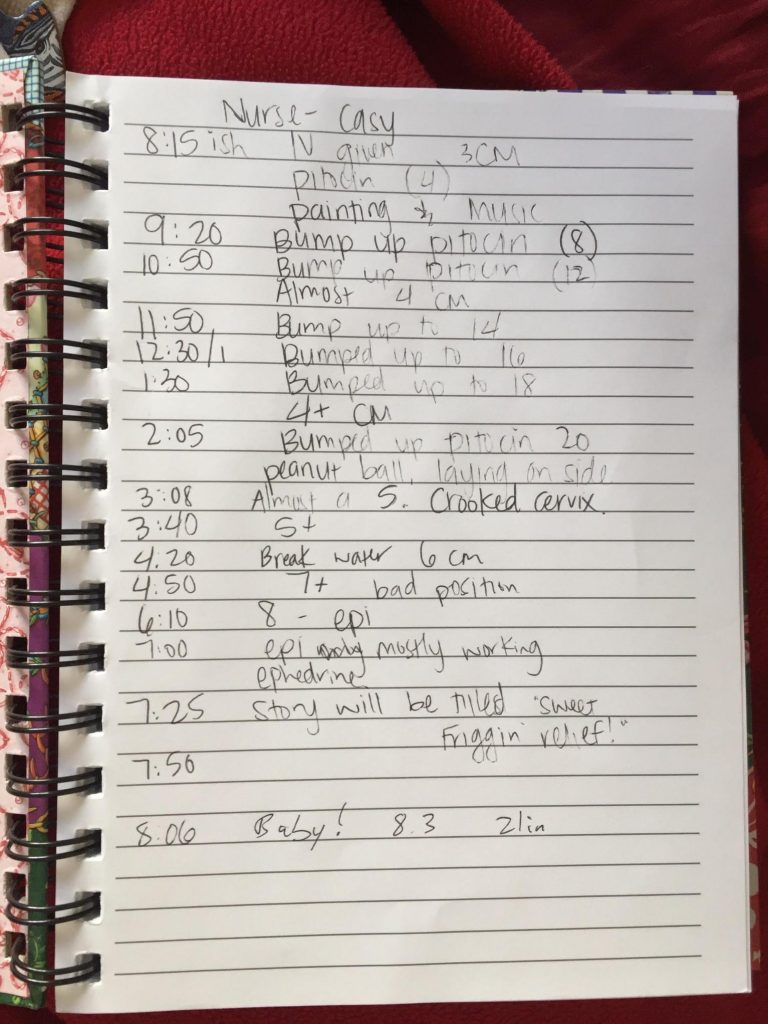 Nurse - Casy
8:15 ish IV given 3CM
pitocin (4)
painting & Music
9:20 Bump up pitocin (8)
10:50 Bump up pitocin (12)
Almost 4 cm
11:50 Bump up to 14
12:30/1 Bumped up to 16
1:30 Bumped up to 18
4+ CM
2:05 Bumped up pitocin 20
peanut ball, laying on side
3:08 Almost a 5. Crooked cervix.
3:40 5+
4:20 Break water 6 cm
4:50 7+ bad position
6:10 8 - epi
7:00 epi mostly working
ephedrine
7:25 Story will be titled "Sweet
Friggin relief!"
7:50
8:06 Baby! 8.3 21in